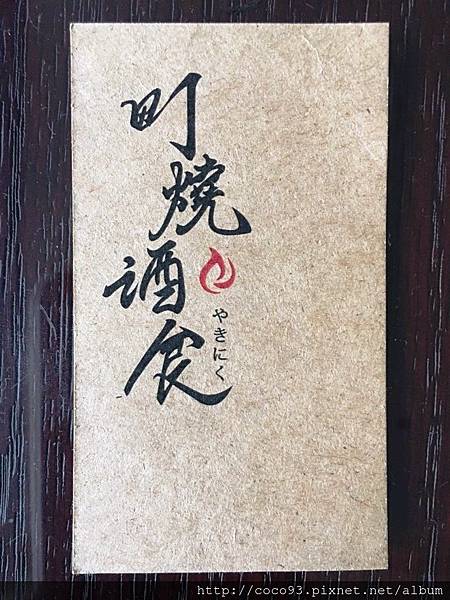 町燒酒食
やきにく
http://coco93.pixnet.net/album